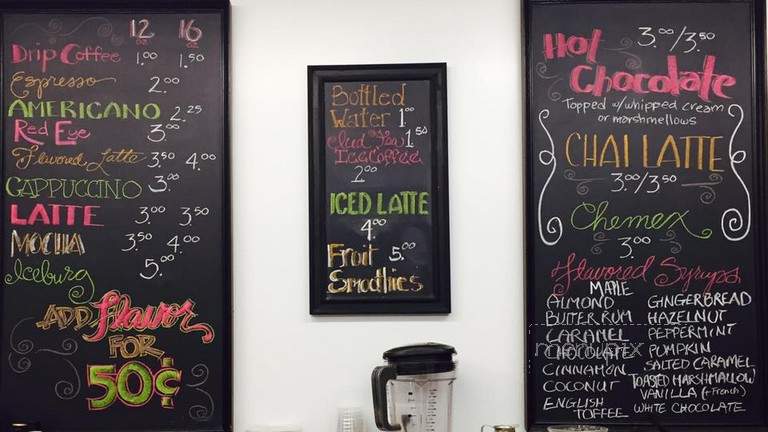 12 16
Drip Coffee 1.00 1.50
Espresso 2.00
AMERICANO 2.25
Red Eye 3.00
Flavored Latte 3.50 4.00
CAPPUCCINO 3.00
LATTE 3.00 3.50
MOCHA 3.50 4.00
Iceburg 5.00
ADD Flavor
FOR
50¢
Bottled
Water 1.00
Iced Tea 1.50
Ice Coffee
2.00
ICED LATTE
4.00
Fruit 5.00
Smoothies
Hot 3.00/3.50
Chocolate
Topped w/whipped cream
or marshmellows
CHAI LATTE
3.00/3.50
Chemex
3.00
Flavored Syrups
MAPLE
ALMOND
BUTTER RUM
CARAMEL
CHOCOLATE
CINNAMON
COCONUT
ENGLISH
TOFFEE
GINGERBREAD
HAZELNUT
PEPPERMINT
PUMPKIN
SALTED CARAMEL
TOASTED MARSHMALLOW
VANILLA (+French)
WHITE CHOCOLATE